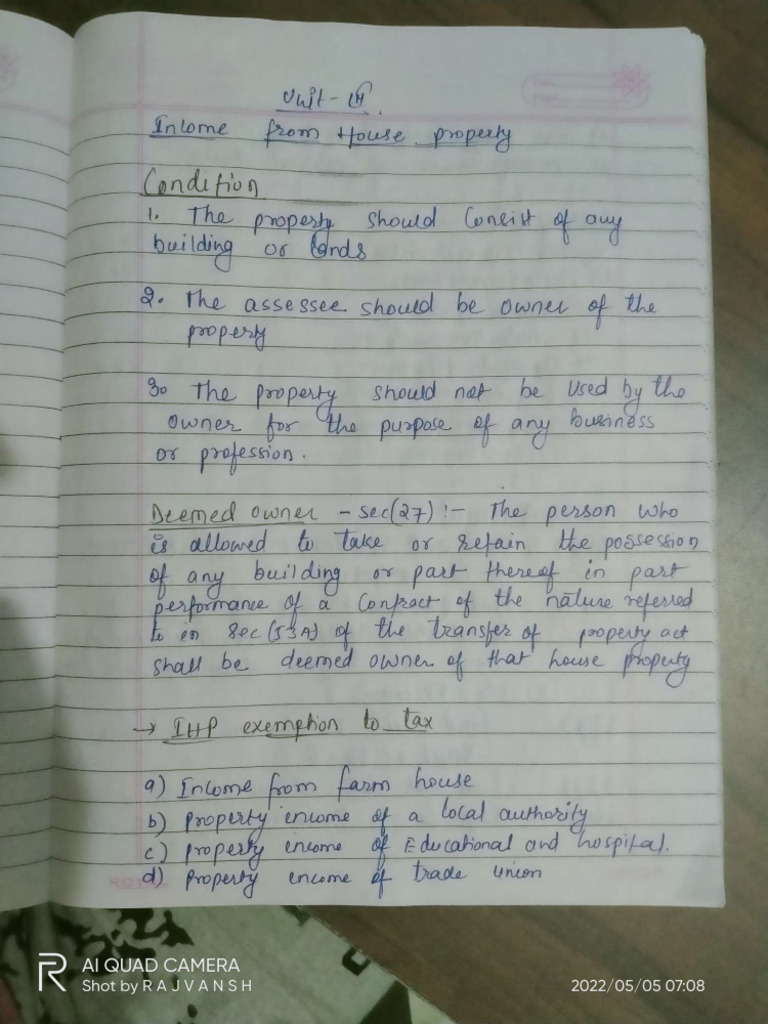 Unit - III
Income from House property
Condition
1. The property should Consist of any
building or lands
2. The assessee should be owner of the
property
3. The property should not be used by the
owner for the purpose of any business
or profession.
Deemed owner - sec(27) :- The person who
is allowed to take or retain the possession
of any building or part thereof in part
performance of a Contract of the nature referred
to in sec(53A) of the transfer of property act
shall be deemed owner of that house property
→ IHP exemption to tax
a) Income from farm house
b) property income of a local authority
c) property income of Educational and hospital.
d) Property income of trade union
AI QUAD CAMERA
Shot by RAJVANSH
2022/05/05 07:08